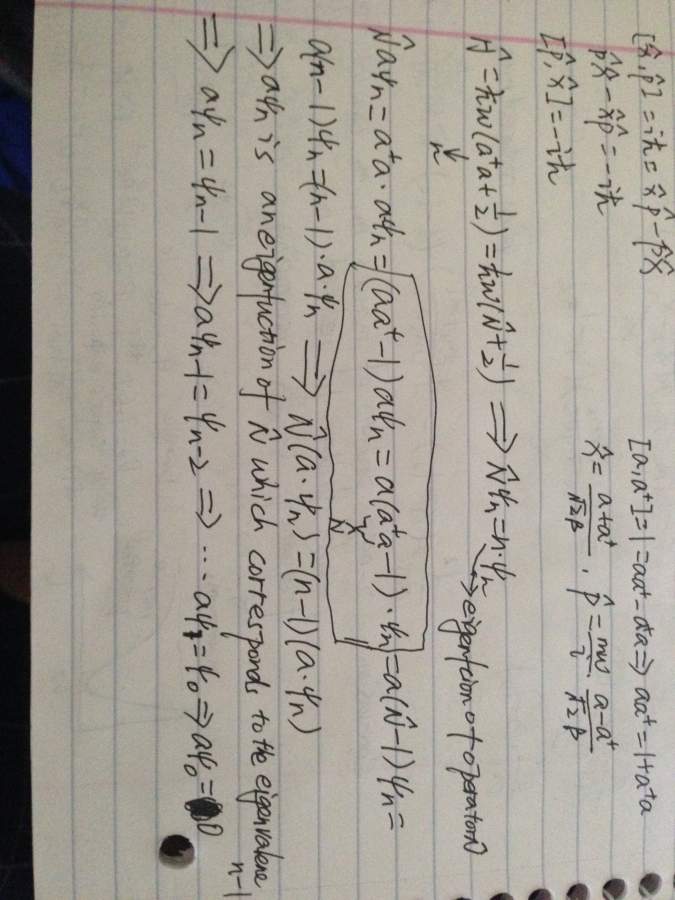 [x̂,p̂]=iħ=x̂p̂-p̂x̂ [a,a⁺]=1=aa⁺-a⁺a⇒ aa⁺=1+a⁺a
p̂x̂-x̂p̂=-iħ x̂=(a+a⁺)/(√2β), p̂=(mω/i)·(a-a⁺)/(√2β)
[p̂,x̂]=-iħ
Ĥ=ħω(a⁺a+1/2)=ħω(N̂+1/2) ⇒ N̂ψn=n·ψn
N̂ → eigenfcion of operator N̂
N̂aψn=a⁺a·aψn=(aa⁺-1)aψn=a(a⁺a-1)·ψn=a(N̂-1)ψn=
N̂
a(n-1)ψn=(n-1)·a·ψn ⇒ N̂(a·ψn)=(n-1)(a·ψn)
⇒ aψn is an eigenfuction of N̂ which corresponds to the eigenvalene n-1
⇒ aψn=ψn-1 ⇒ aψn-1=ψn-2 ⇒ ... aψ1=ψ0 ⇒ aψ0=0